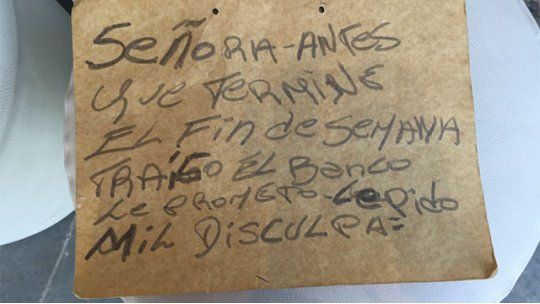 SEÑORA-ANTES
QUE TERMINE
EL FIN de SEMANA
TRAÍGO EL BANCO
LE PROMETO-LE PIDO
MIL DISCULPA=